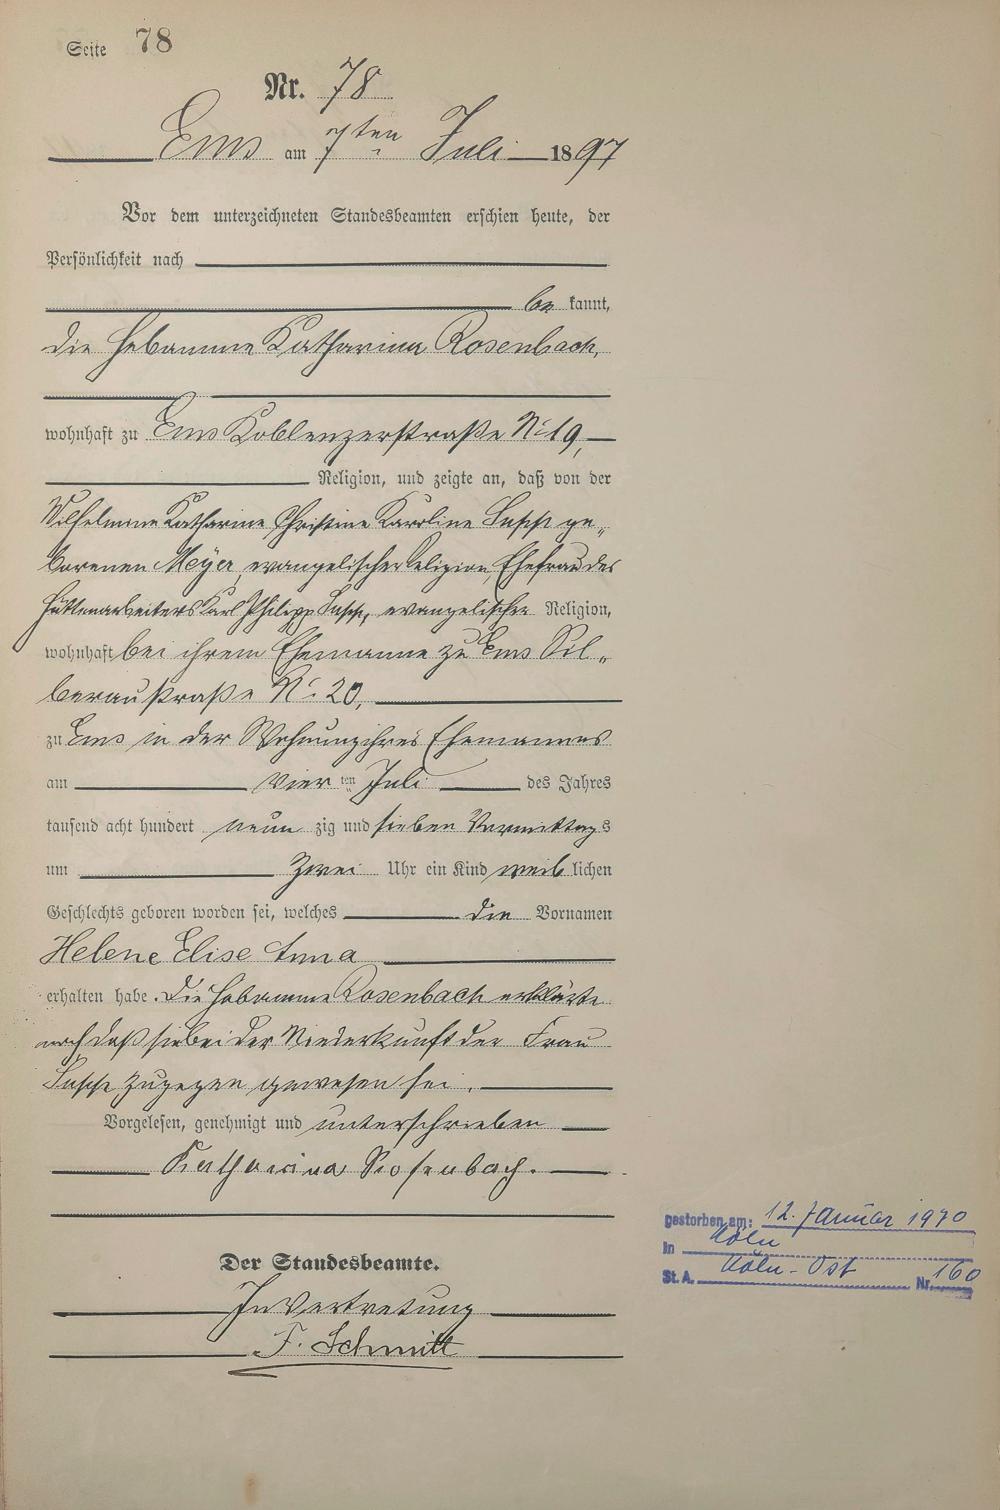 Seite 78
Nr. 78
Ems am 7ten Juli 1897
Vor dem unterzeichneten Standesbeamten erschien heute, der
Persönlichkeit nach
be kannt,
die Hebamme Katharina Rosenbach,
wohnhaft zu Ems Koblenzerstraße No 19,
Religion, und zeigte an, daß von der
Wilhelmine Katharine Christine Karoline ge„
borenen Meyer, evangelischer Religion, Ehefrau des
Hüttenarbeiters Karl Philipp evangelischer Religion,
wohnhaft bei ihrem Ehemanne zu Ems Sil„
beraustraße No 20,
zu Ems in der Wohnung ihres Ehemannes
am vier ten Juli des Jahres
tausend acht hundert neun zig und sieben Vormittags
um Zwei Uhr ein Kind weib lichen
Geschlechts geboren worden sei, welches die Vornamen
Helene Elise Anna
erhalten habe. Die Hebamme Rosenbach erklärte
noch daß sie bei der Niederkunft der Frau
zugegen gewesen sei.
Vorgelesen, genehmigt und unterschrieben
Katharina Rosenbach.
Der Standesbeamte.
In Vertretung
F. Schmitt
gestorben am: 12. Januar 1970
in Köln
St. A. Köln-Ost Nr. 160